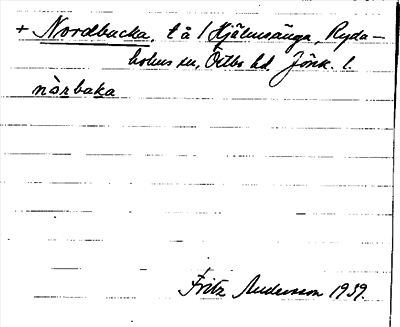 + Nordbacka, t å 1 Hjälmsänga, Ryda-
holms sn, Östbo hd. Jönk. l.
nòrbaka
Fritz Andersson 1939.